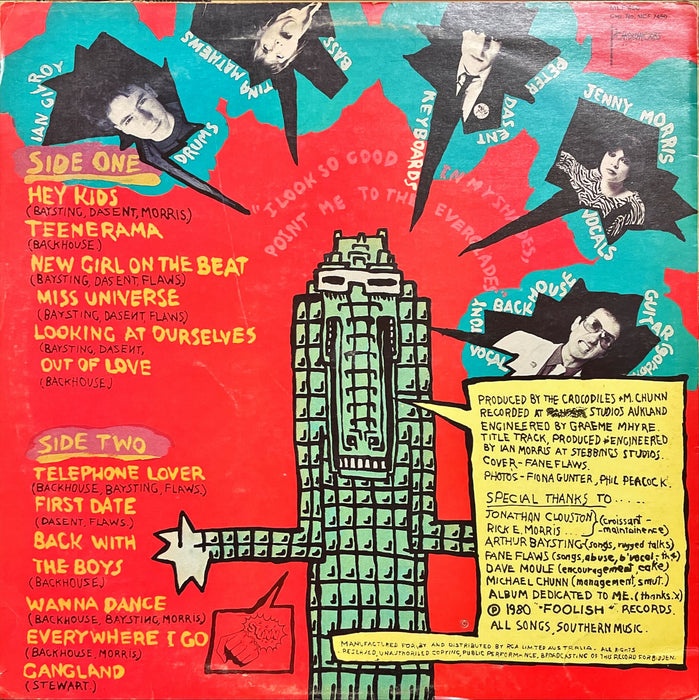 IAN GILROY
DRUMS
TINA MATHEWS
BASS
PETER DASENT
KEYBOARDS
JENNY MORRIS
VOCALS
TONY BACKHOUSE
VOCAL
GUITAR
"I LOOK SO GOOD IN MY SHADES,
POINT ME TO THE EVERGLADES"
SIDE ONE
HEY KIDS
(BAYSTING, DASENT, MORRIS.)
TEENERAMA
(BACKHOUSE)
NEW GIRL ON THE BEAT
(BAYSTING, DASENT, FLAWS)
MISS UNIVERSE
(BAYSTING, DASENT, FLAWS)
LOOKING AT OURSELVES
(BAYSTING, DASENT,
OUT OF LOVE
(BACKHOUSE)
SIDE TWO
TELEPHONE LOVER
(BACKHOUSE, BAYSTING, FLAWS.)
FIRST DATE
(DASENT, FLAWS.)
BACK WITH
THE BOYS
(BACKHOUSE)
WANNA DANCE
(BACKHOUSE, BAYSTING, MORRIS)
EVERYWHERE I GO
(BACKHOUSE, MORRIS,)
GANGLAND
(STEWART.)
PRODUCED BY THE CROCODILES + M. CHUNN
RECORDED AT STUDIOS AUKLAND
ENGINEERED BY GRAEME MHYRE.
TITLE TRACK, PRODUCED & ENGINEERED
BY IAN MORRIS AT STEBBINGS STUDIOS.
COVER - FANE FLAWS.
PHOTOS - FIONA GUNTER, PHIL PEACOCK.
SPECIAL THANKS TO.....
JONATHAN CLOUSTON } (croissant -
RICK E. MORRIS.... } - maintainence)
ARTHUR BAYSTING (songs, rugged talks)
FANE FLAWS (songs, abuse, b'vocal: th4)
DAVE MOULE (encouragement, cake)
MICHAEL CHUNN (management, smut.)
ALBUM DEDICATED TO ME. (thanks.x)
℗ 1980 "FOOLISH" RECORDS.
ALL SONGS, SOUTHERN MUSIC.
©
MANUFACTURED FOR/BY AND DISTRIBUTED BY RCA LIMITED AUSTRALIA. ALL RIGHTS
RESERVED, UNAUTHORISED COPYING, PUBLIC PERFORMANCE, BROADCASTING OF THIS RECORD FORBIDDEN.